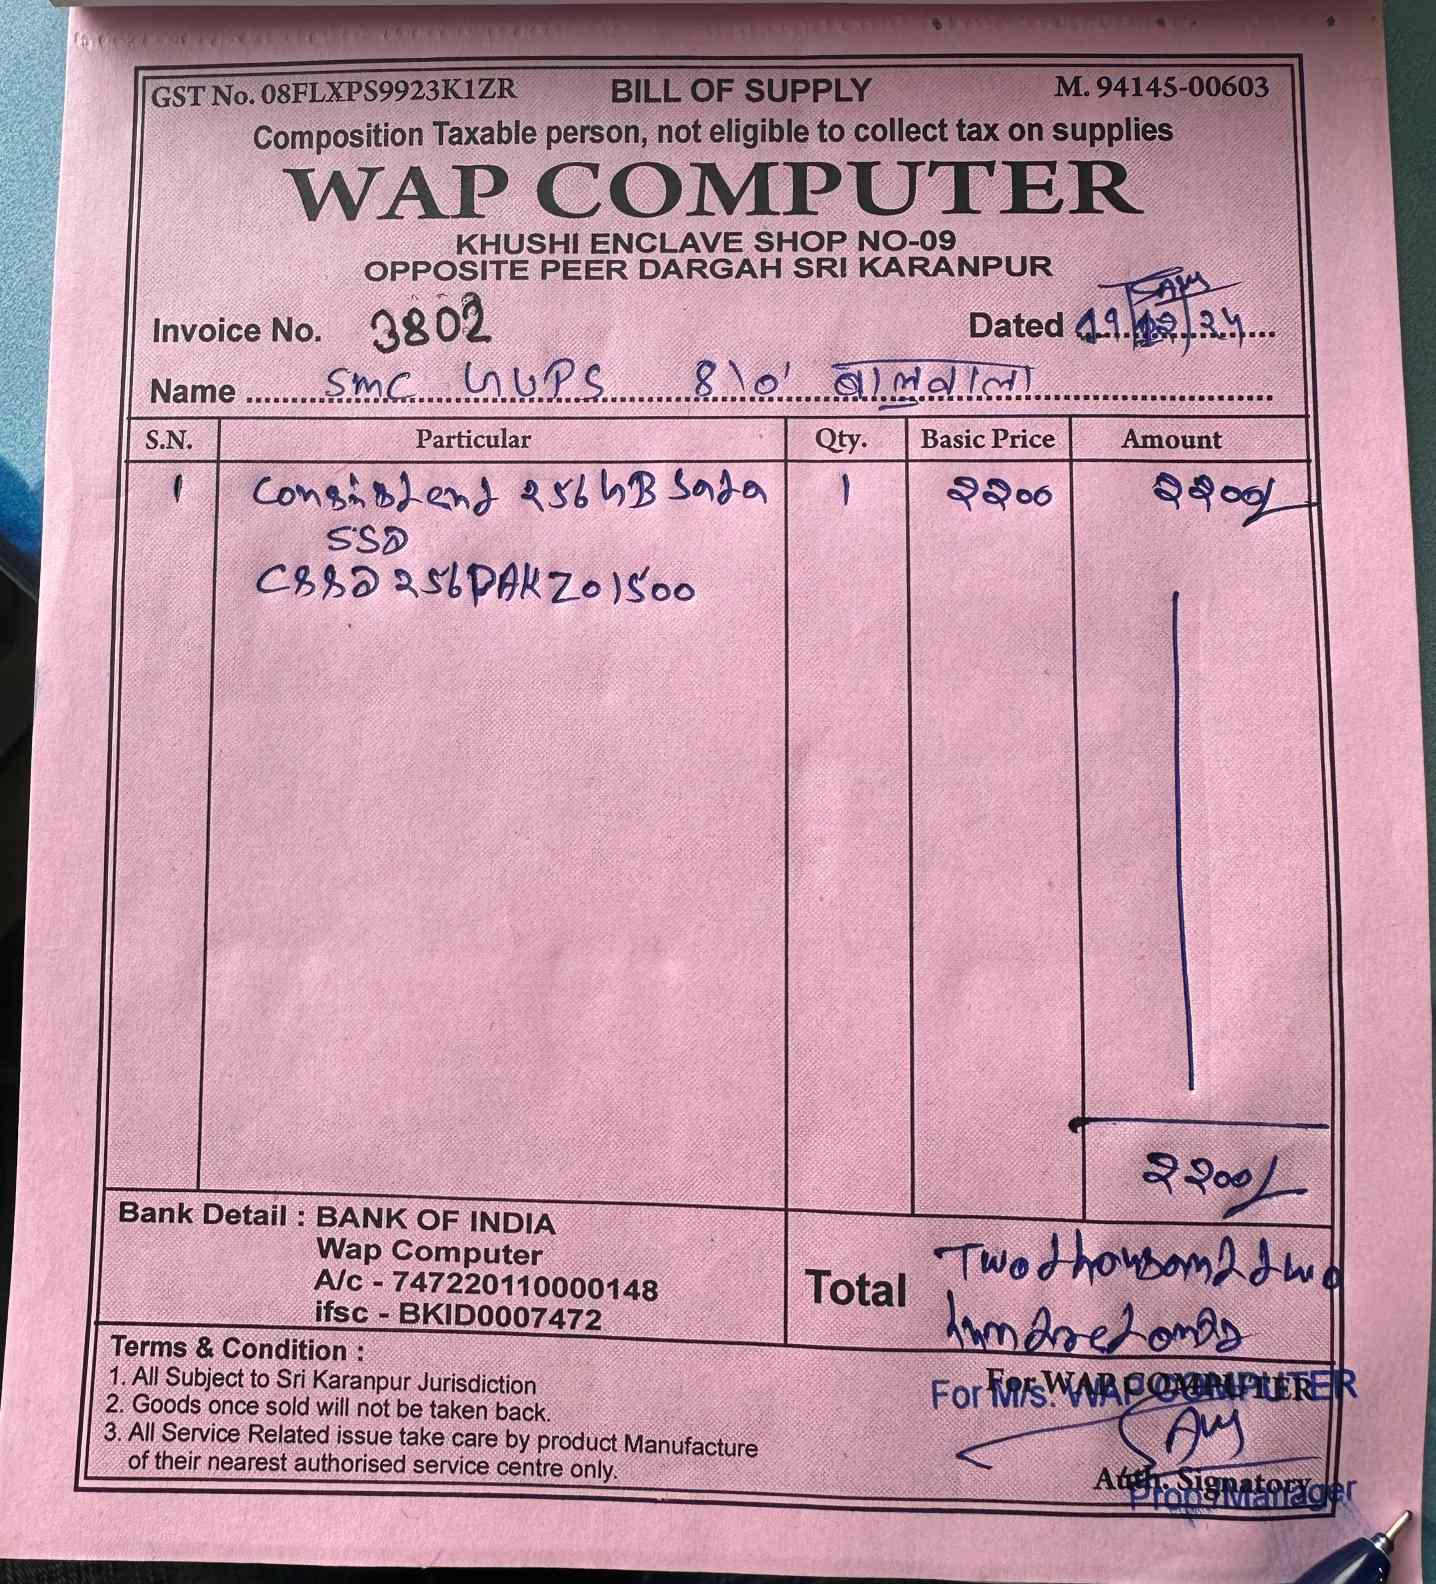 GST No. 08FLXPS9923K1ZR BILL OF SUPPLY M. 94145-00603
Composition Taxable person, not eligible to collect tax on supplies
WAP COMPUTER
KHUSHI ENCLAVE SHOP NO-09
OPPOSITE PEER DARGAH SRI KARANPUR
Invoice No. 3802 Dated 19
Name SMC GUPS 8\0'
S.N. Particular Qty. Basic Price Amount
1 Consistend 256 GB Sada 1 2200 2200/
SSD
CSSD256PAKZ01500
2200/
Bank Detail : BANK OF INDIA
Wap Computer
A/c - 747220110000148
ifsc - BKID0007472
Total Two thousand two
hundred only
Terms & Condition :
1. All Subject to Sri Karanpur Jurisdiction
2. Goods once sold will not be taken back.
3. All Service Related issue take care by product Manufacture
of their nearest authorised service centre only.
For WAP COMPUTER
For M/s. WAP COMPUTER
Auth. Signatory
Prop./Manager